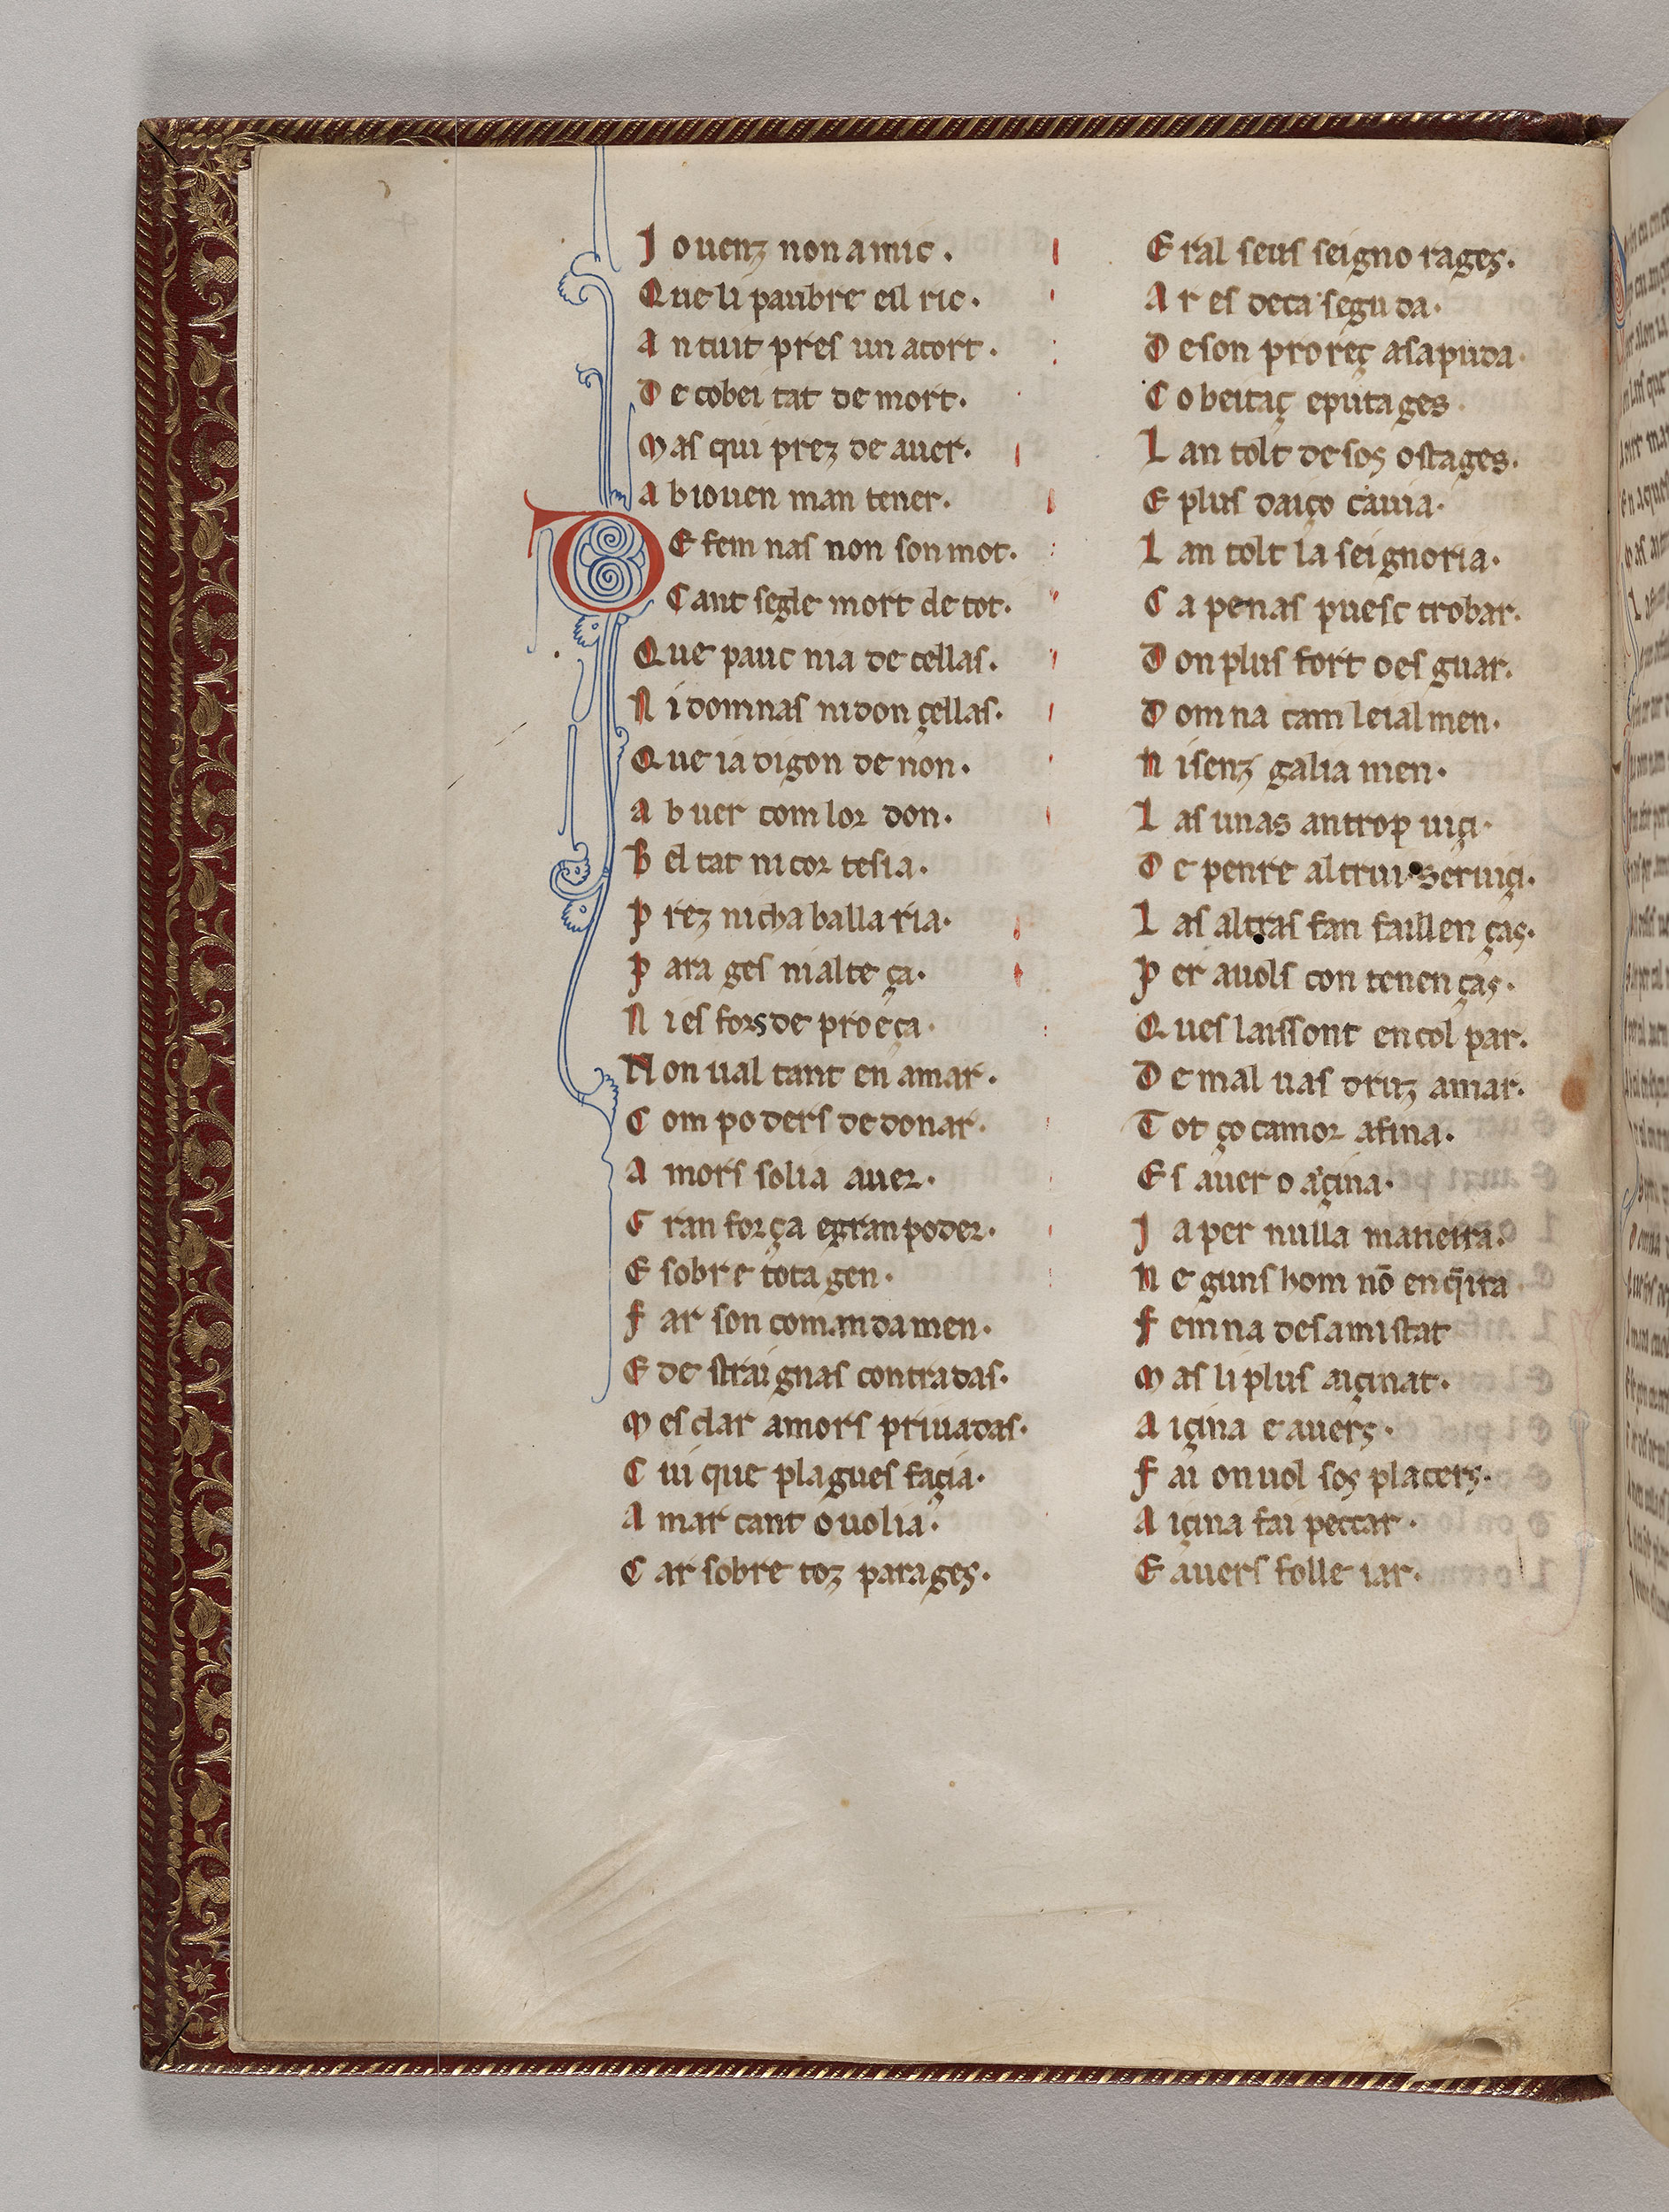 Jouenz non amic.
Que li paubre eil ric.
An tuit pres un acort.
De cobeitat de mort.
Mas qui prez de auer.
Ab iouen man tener.
DE femnas non son mot.
Cant segle mort de tot.
Que pauc nia de cellas.
Ni domnas ni donçellas.
Que ia digon de non.
Ab uer com lor don.
Beltat ni cortesia.
Prez ni chaballaria.
Parages ni alteça.
Ni es fors de proeça.
Non ual tant en amar.
Com poders de donar.
Amors solia auer.
Gran força e gran poder.
E sobre tota gen.
Far son comandamen.
E de straignas contradas.
Mesclar amors priuadas.
Cui que plagues façia.
Amar cant o uolia.
Car sobre toz parages.
Eral seus seignorages.
Ar es decaseguda.
De son proreç asaputa.
Cobeitaç e putages.
Lan tolt de sos ostages.
E plus daiço cauia.
Lan tolt la seignoria.
Ca penas puesc trobar.
Don plus fort oes guar.
Domna cam leialmen.
Ni senz galiamen.
Las unas an trop uiçi.
De penre altrui seruiçi.
Las altras fan faillenças.
Per auols contenenças.
Ques laissont encolpar.
De maluas druz amar.
Tot ço camor afina.
Es auer o açina.
Ja per nulla maneira.
Neguns hom nō enq̄ira
Femna desamistat
Mas li plus aiçinat.
Aiçina e auers.
Fai on uol sos placers.
Aiçina fai peccar.
E auers folleiar.